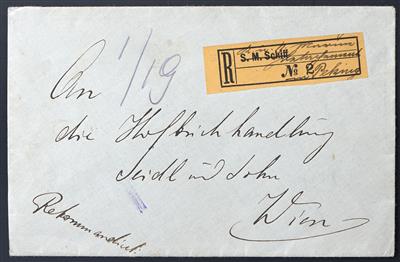 1/19
R
S. M. Schiff
№ 2
Peking
An
die Hofbuchhandlung
Seidl und Sohn
Wien
Rekommandiert.